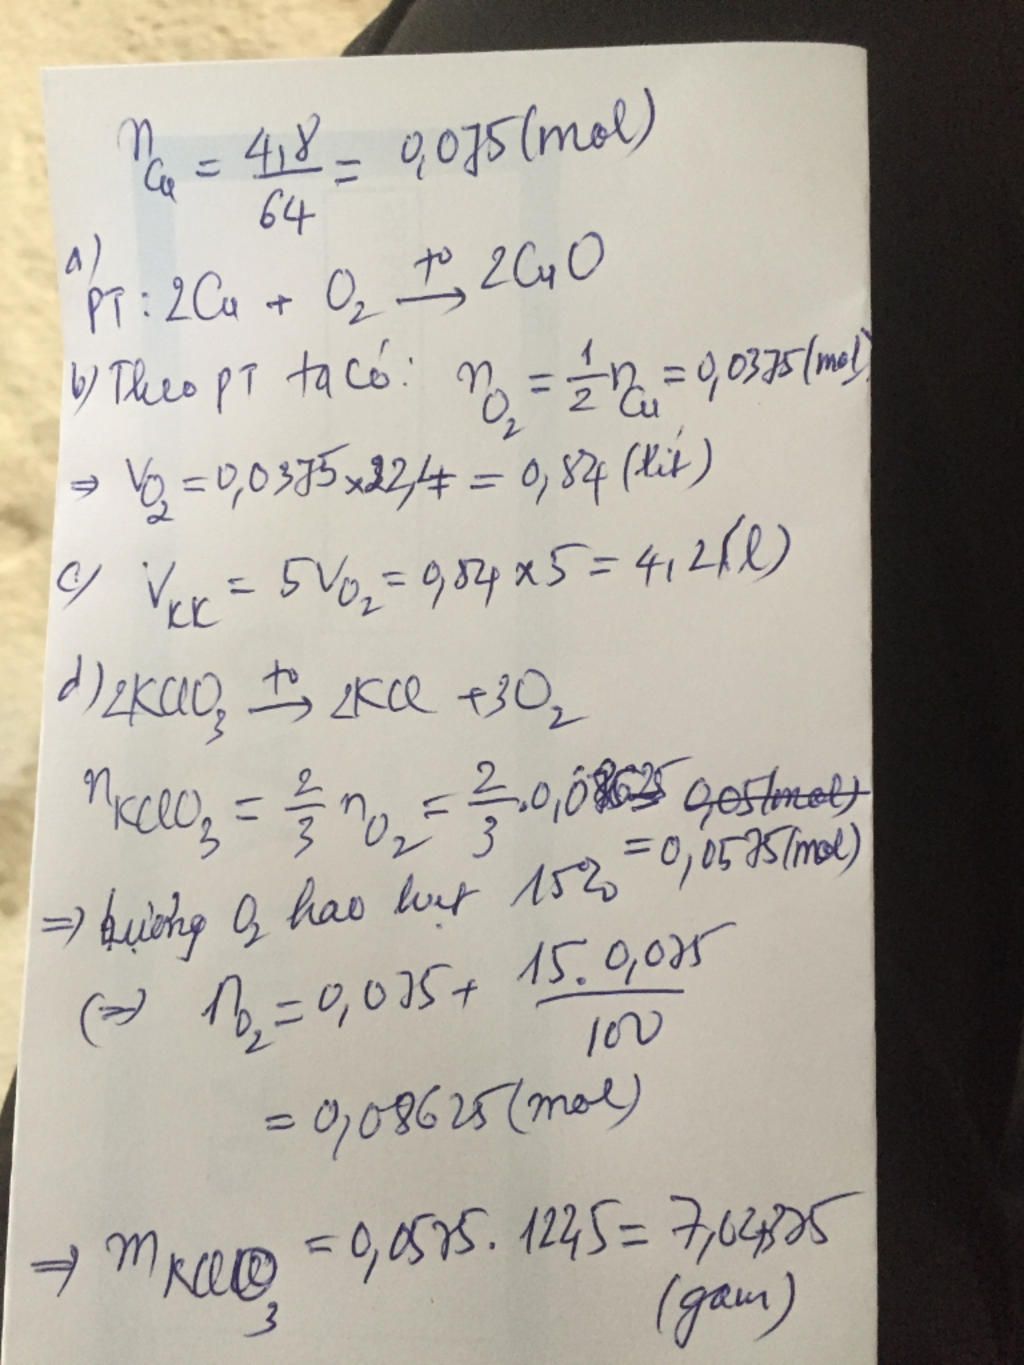 n_Cu = 4,8/64 = 0,075 (mol)
a)
PT: 2Cu + O₂ →(t°) 2CuO
b) Theo PT ta có: n_O₂ = 1/2 n_Cu = 0,0375 (mol)
⇒ V_O₂ = 0,0375 × 22,4 = 0,84 (lít)
c) V_KK = 5V_O₂ = 0,84 × 5 = 4,2 (l)
d) 2KClO₃ →(t°) 2KCl + 3O₂
n_KClO₃ = 2/3 n_O₂ = 2/3 . 0,08625 0,05 (mol)
= 0,0575 (mol)
⇒ lượng O₂ hao hụt 15%
(⇒) n_O₂ = 0,075 + 15. 0,075/100
= 0,08625 (mol)
⇒ m_KClO₃ = 0,0575. 122,5 = 7,04375
(gam)